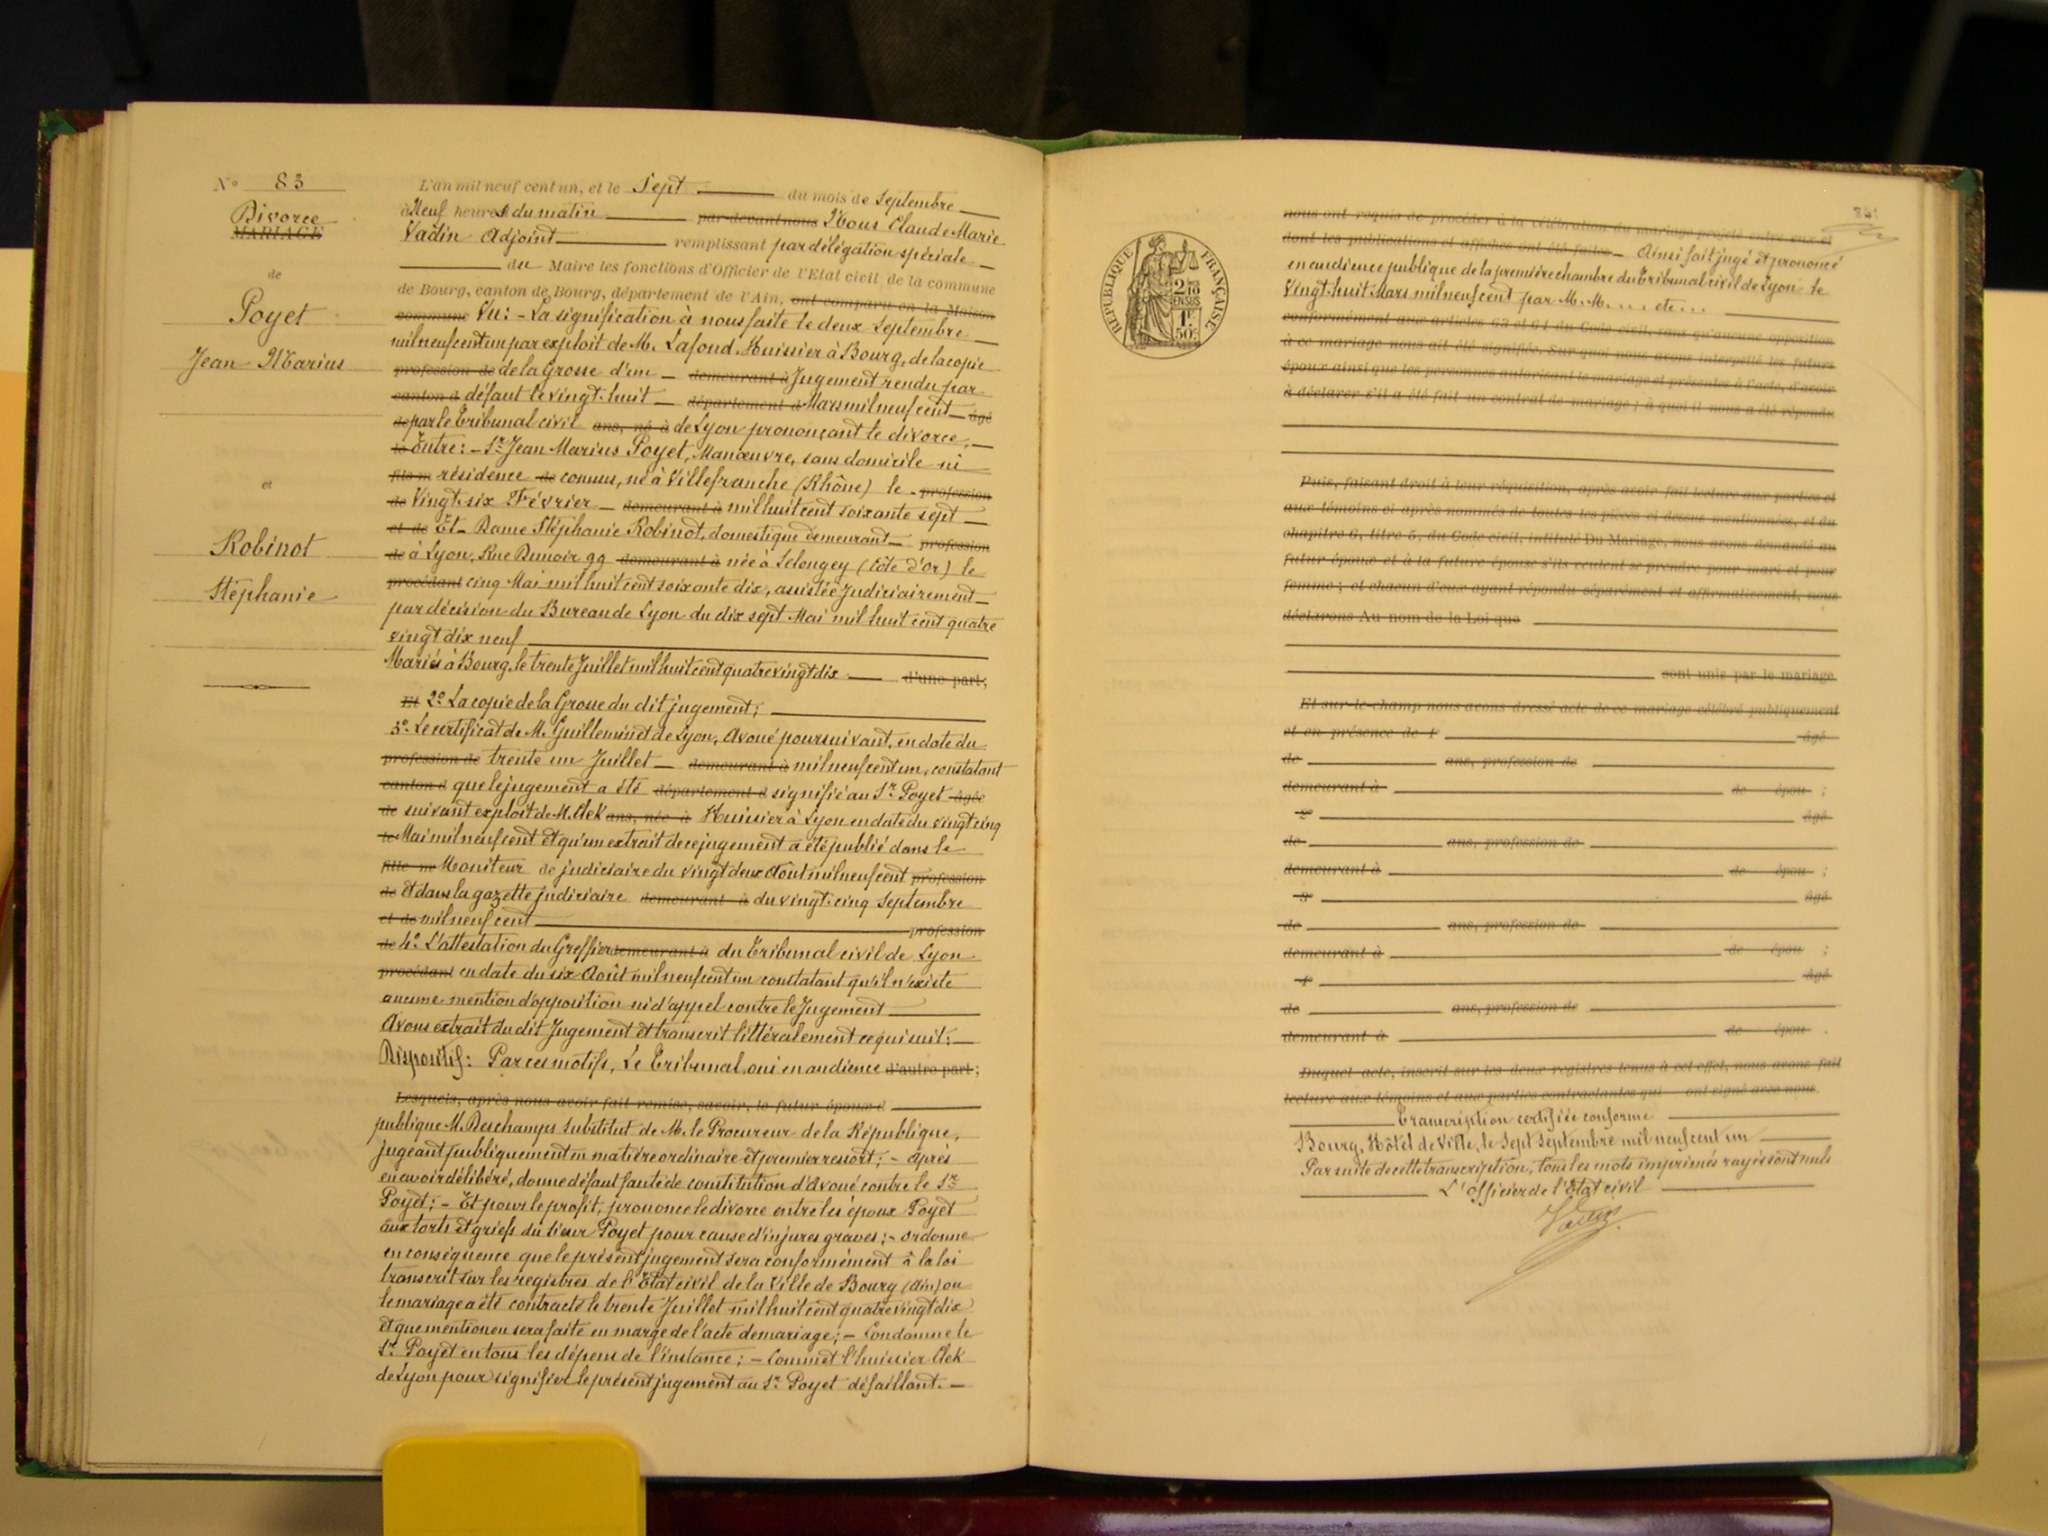 N° 83
Divorce
MARIAGE
de
Poyet
Jean Marius
et
Robinot
Stéphanie
L'an mil neuf cent un, et le Sept du mois de Septembre
à Neuf heures du matin par-devant nous Nous Claude Marie
Vadin Adjoint remplissant par délégation spéciale
du Maire les fonctions d'Officier de l'Etat civil de la commune
de Bourg, canton de Bourg, département de l'Ain, ont comparu en la Maison
commune Vu: - La signification à nous faite le deux Septembre
mil neuf cent un par exploit de M. Lafond, Huissier à Bourg, de la copie
profession de de la Grosse d'un demeurant à Jugement rendu par
canton d défaut le vingt-huit département d Mars mil neuf cent âgé
de par le Tribunal civil ans, né à de Lyon prononçant le divorce,
le Entre: - Sr Jean Marius Poyet, Manœuvre, sans domicile ni
fils m résidence de connus, né à Villefranche (Rhône) le profession
de Vingt-six Février demeurant à mil huit cent soixante sept
et de Et - Dame Stéphanie Robinot, domestique demeurant profession
de à Lyon, Rue Dunoir 99 demeurant à née à Selongey (Côte d'Or) le
procédant cinq Mai mil huit cent soixante dix, assistée judiciairement
par décision du Bureau de Lyon du dix sept Mai mil huit cent quatre
vingt dix neuf
Mariés à Bourg, le trente Juillet mil huit cent quatre vingt dix d'une part;
Et 2° La copie de la Grosse du dit jugement;
3° Le certificat de M. Guilleminet de Lyon, Avoué poursuivant, en date du
profession de trente un Juillet demeurant à mil neuf cent un, constatant
canton d que le jugement a été département d signifié au Sr Poyet âgée
de suivant exploit de M. Clek ans, née à Huissier à Lyon en date du vingt cinq
le Mai mil neuf cent et qu'un extrait de ce jugement a été publié dans le
fille m Moniteur de judiciaire du vingt deux Août mil neuf cent profession
de et dans la gazette judiciaire demeurant à du vingt-cinq Septembre
et de mil neuf cent profession
de 4° L'attestation du Greffier demeurant à du Tribunal civil de Lyon
procédant en date du six Août mil neuf cent un constatant qu'il n'existe
aucune mention d'opposition ni d'appel contre le Jugement
Avons extrait du dit Jugement et transcrit littéralement ce qui suit:
Dispositif: Par ces motifs, Le Tribunal, oui en audience d'autre part;
Lesquels, après nous avoir fait remise, savoir, le futur époux d
publique M. Deschamps Substitut de M. le Procureur de la République,
jugeant publiquement en matière ordinaire et premier ressort; - après
en avoir délibéré, donne défaut faute de constitution d'Avoué contre le Sr
Poyet; - Et pour le profit, prononce le divorce entre les époux Poyet
aux torts et griefs du sieur Poyet pour cause d'injures graves; - ordonne
en conséquence que le présent jugement sera conformément à la loi
transcrit sur les registres de l'Etat civil de la Ville de Bourg (Ain) ou
le mariage a été contracté le trente Juillet mil huit cent quatre vingt dix
et que mention en sera faite en marge de l'acte de mariage; - Condamne le
Sr Poyet en tous les dépens de l'instance; - Commet l'huissier Clek
de Lyon pour signifier le présent jugement au Sr Poyet défaillant.
RÉPUBLIQUE FRANÇAISE
2/10 EN SUS
1F 50c
nous ont requis de procéder à la célébration du mariage projeté entre eux et
dont les publications et affiches ont été faites Ainsi fait jugé et prononcé
en audience publique de la première chambre du Tribunal civil de Lyon le
Vingt-huit Mars mil neuf cent par M.M.... etc...
conformément aux articles 63 et 64 du Code civil, sans qu'aucune opposition
à ce mariage nous ait été signifiée. Sur quoi nous avons interpellé les futurs
époux ainsi que les personnes autorisant le mariage et présentes à l'acte, d'avoir
à déclarer s'il a été fait un contrat de mariage; à quoi il nous a été répondu
Puis, faisant droit à leur réquisition, après avoir fait lecture aux parties et
aux témoins ci-après nommés de toutes les pièces ci-dessus mentionnées, et du
chapitre 6, titre 5, du Code civil, intitulé Du Mariage, nous avons demandé au
futur époux et à la future épouse s'ils veulent se prendre pour mari et pour
femme; et chacun d'eux ayant répondu séparément et affirmativement, nous
déclarons Au nom de la Loi que
sont unis par le mariage
Et sur-le-champ nous avons dressé acte de ce mariage célébré publiquement
et en présence de 1° âgé
de ans, profession de
demeurant à de épou ;
2° âgé
de ans, profession de
demeurant à de épou ;
3° âgé
de ans, profession de
demeurant à de épou ;
4° âgé
de ans, profession de
demeurant à de épou .
Duquel acte, inscrit sur les deux registres tenus à cet effet, nous avons fait
lecture aux témoins et aux parties contractantes qui ont signé avec nous
Transcription certifiée conforme
Bourg, Hôtel de Ville, le Sept Septembre mil neuf cent un
Par suite de cette transcription, tous les mots imprimés rayés sont nuls
L'officier de l'Etat civil
Vadin